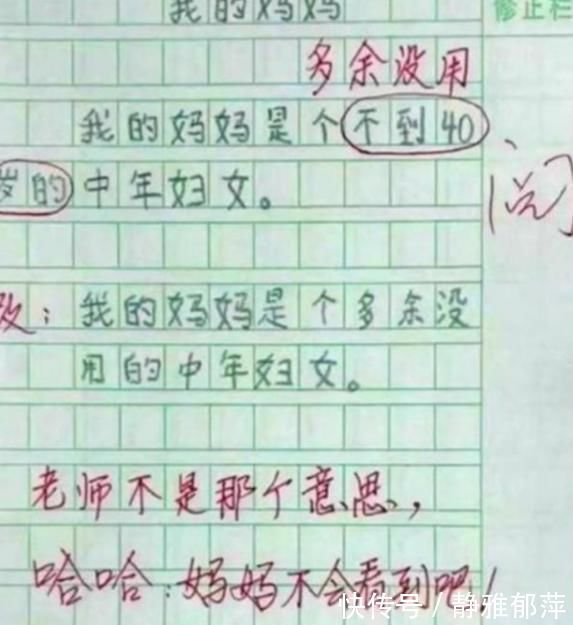 我的妈妈
修正栏
多余没用
我的妈妈是个不到40
岁的中年妇女。
阅
改：我的妈妈是个多余没
用的中年妇女。
老师不是那个意思，
哈哈：妈妈不会看到吧！
快传号／静雅郁萍